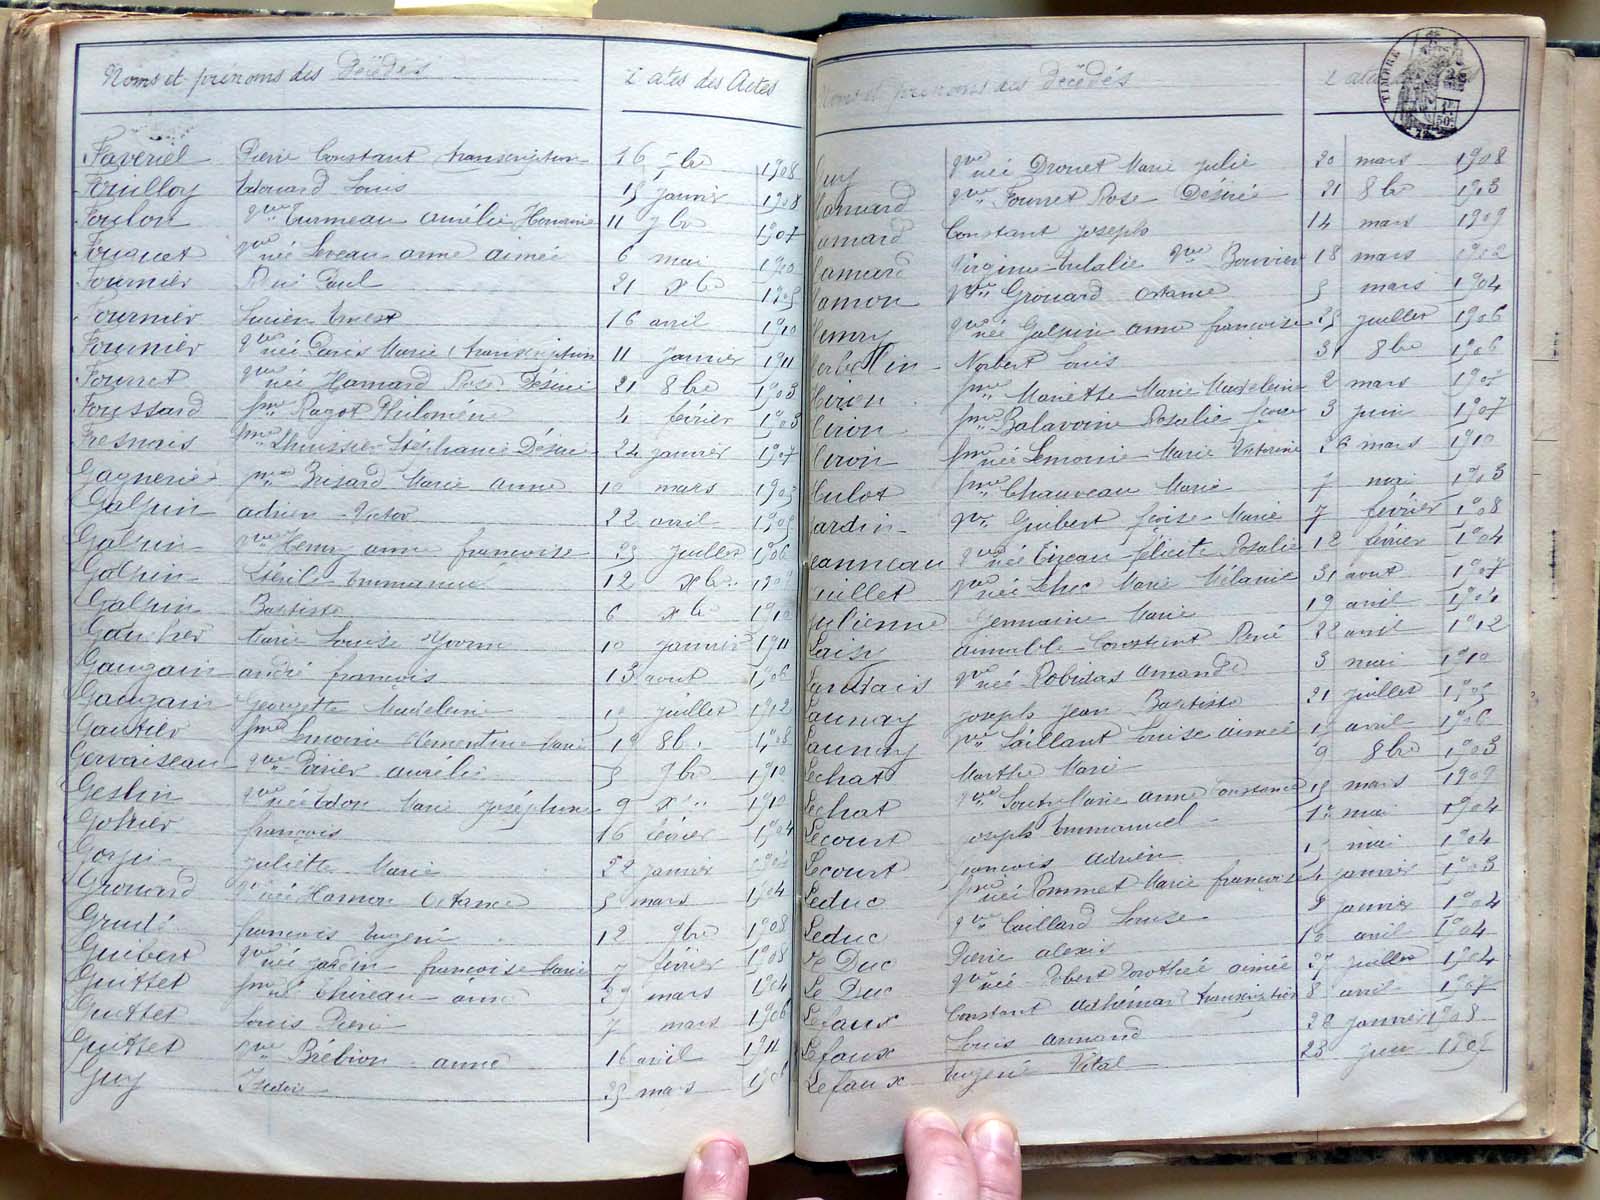 Noms et prénoms des Décédés Dates des Actes
Faveriel Pierre Constant transcription 16 7bre 1908
Fouilloy Edouard Louis 15 janvier 1908
Foulon vve Turmeau aurélie Honorine 11 7bre 1907
Fouquet vve née Leveau anne aimée 6 mai 1910
Fournier René Paul 21 xbre 1905
Fournier Lucien Ernest 16 avril 1910
Fournier vve née Paris Marie (transcription 11 janvier 1911
Fourret vve née Hamard Rose Désirée 21 8bre 1903
Foussard fme Ragot Philomène 4 février 1903
Fresnais fme Lhuissier Stéphanie Désirée 24 janvier 1907
Gagnerie fme Busard Marie anne 10 mars 1905
Galpin adrien Victor 22 avril 1905
Galpin vve Henry anne françoise 25 juillet 1906
Galpin Emmanuel 12 xbre
Galpin Baptiste 6 xbre 1910
Gaucher Marie Louise Yvonne 10 janvier 1911
Gaugain andré françois 13 aout 1906
Gaugain Georgette Madeleine 15 juillet 1912
Gautier fme Lemoine Clémentine Marie 8bre 1908
Gervaiseau vve Parier aurélie 5 9bre 1910
Geslin vve née Edou Marie joséphine 9 xbre 1910
Gohier françois 16 février 1904
Gorpi juliette Marie 22 janvier
Grouard vve née Hamon Octance 5 mars 1904
Grudé francois Eugène 12 9bre 1908
Guibert vve née jardin françoise Marie 7 février 1908
Guittet fme née Thireau anne mars 1904
Guittet Louis Pierre 7 mars 1906
Guittet vve Brébion anne 16 avril 1911
Guy Isidore 25 mars
Noms et prénoms des Décédés
TIMBRE
Guy vve née Drouet Marie julie 20 mars 1908
Hamard vve Fourret Rose Desirée 21 8bre 1903
Hamard Constant joseph 14 mars 1909
Hamard Virginie Eulalie vve Bouvier 18 mars 1902
Hamon vve Grouard Octance 5 mars 1904
Henry vve née Galpin anne françoise 25 juillet 1906
Herbellin Norbert Louis 31 8bre 1906
Hiron fme Mariette Marie Madeleine 2 mars
Hiron fme Balavoine Rosalie 3 juin 1907
Hiron fme née Lemoine Marie Victorine 26 mars 1910
Hulot fme Chauveau Marie mai 1903
Jardin vve Guibert foise Marie 7 février 1908
Jeanneau vve née félicité Rosalie 12 février 1904
Juillet vve née Marie Mélanie 31 aout 1907
Julienne Germaine Marie 19 avril
Lair aimable Constant René 22 avril 1912
Landais vve née Robidas amande 3 mai 1910
Launay joseph jean Baptiste 21 juillet 1905
Launay vve Saillant Louise aimée avril 1906
Lechat Marthe Marie 9 8bre 1903
Lechat vve anne Constance 15 mars 1909
Lecourt joseph Emmanuel mai 1904
Lecourt francois adrien mai 1904
Leduc fme née Pommet Marie françoise 4 janvier 1903
Leduc vve Caillard Louise 9 janvier 1904
Le Duc Pierre alexis 15 avril 1904
Le Duc vve née Robert Dorothée aimée 27 juillet 1904
Lefaux Constant adhémar transcription 8 avril 1907
Lefaux Louis armand 28 janvier 1908
Lefaux Eugène Vital 23 juin